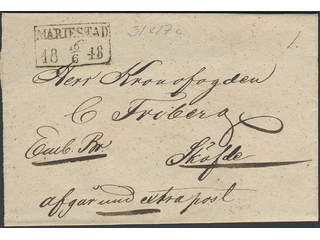 MARIESTAD
18 16/6 48
31 K17 c
1.
Herr Kronofogden
C Friberg
Emb. Br
Sköfde
afgår med extrapost